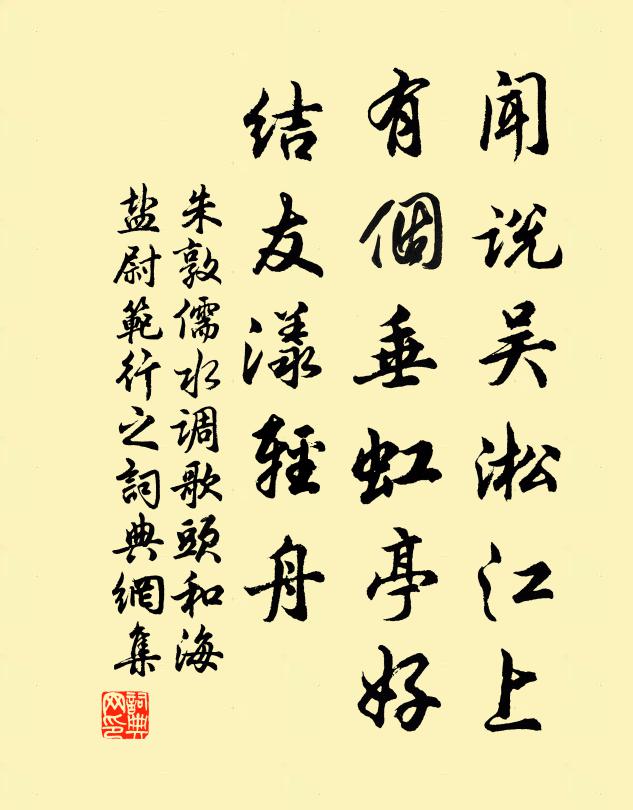 闻说吴淞江上
有個垂虹亭好
结友漾輕舟
朱敦儒水调歌頭和海
盐尉範行之詞典網集
詞典
网印